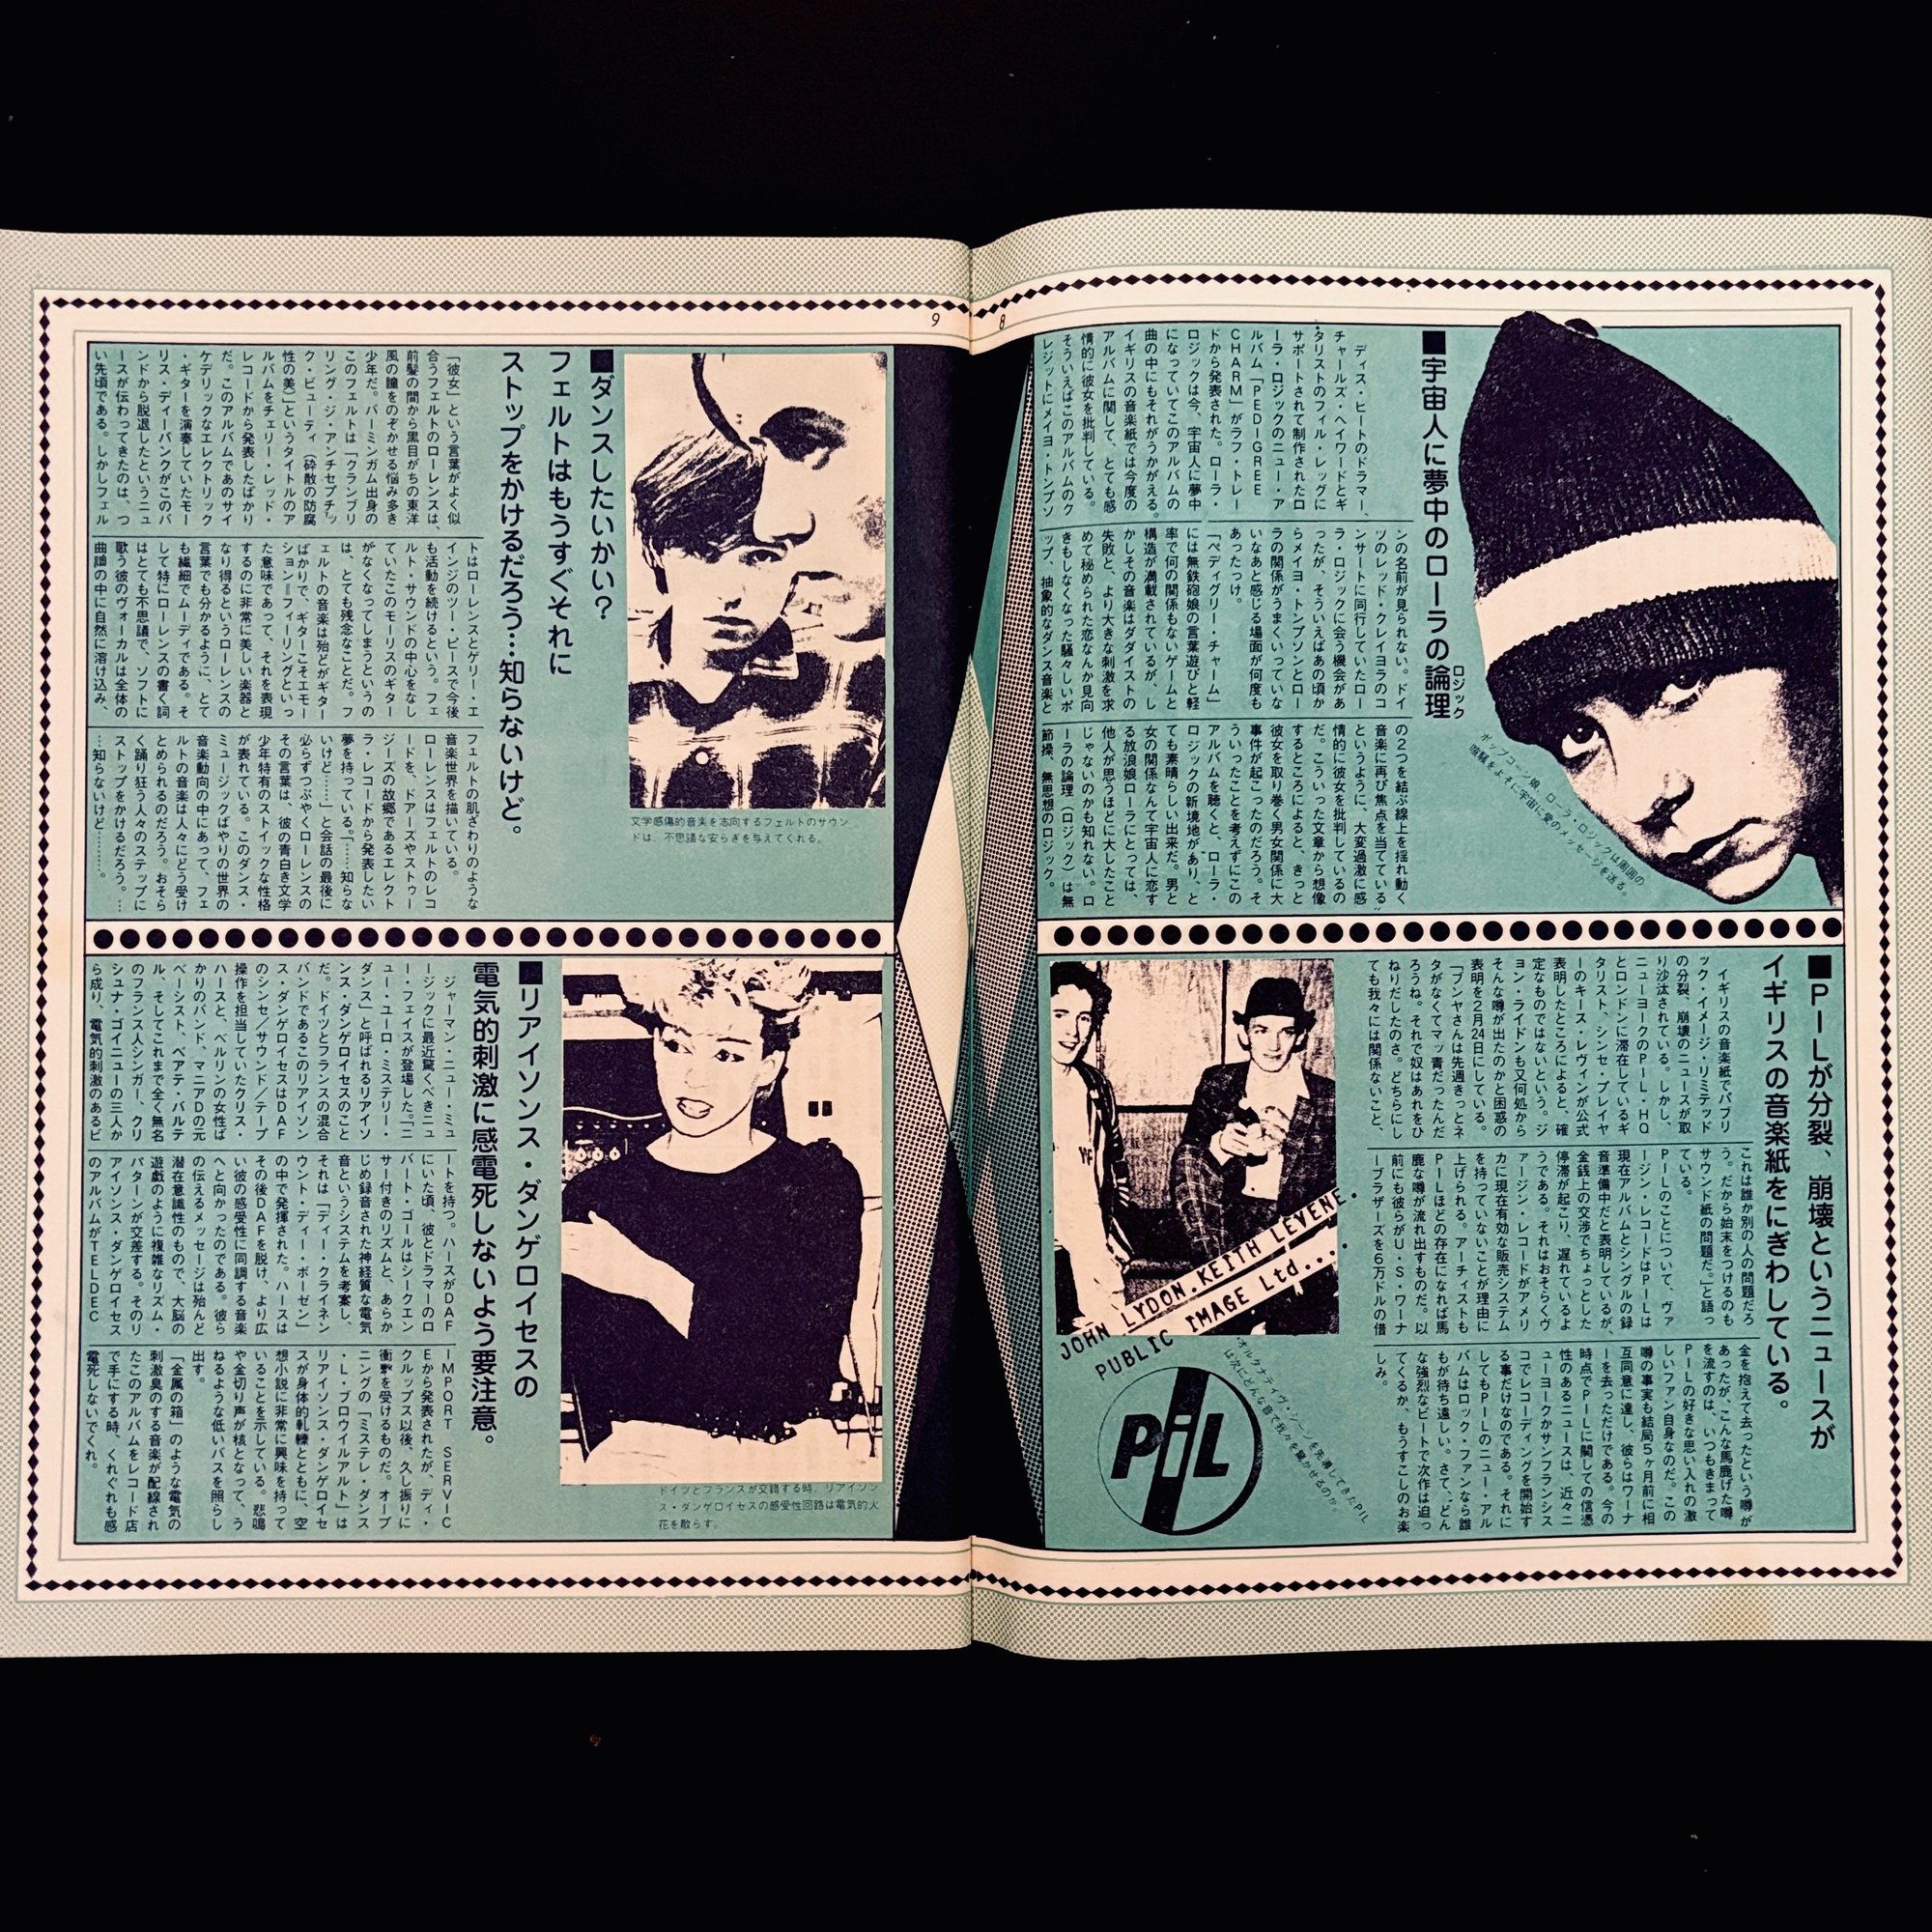 8
■宇宙人に夢中のローラの論理
ロジック
ディス・ヒートのドラマー、
チャールズ・ヘイワードとギ
タリストのフィル・レッグに
サポートされて制作されたロ
ーラ・ロジックのニュー・ア
ルバム「PEDIGREE
CHARM」がラフ・トレー
ドから発表された。ローラ・
ロジックは今、宇宙人に夢中
になっていてこのアルバムの
曲の中にもそれがうかがえる。
イギリスの音楽紙では今度の
アルバムに関して、とても感
情的に彼女を批判している。
そういえばこのアルバムのク
レジットにメイヨ・トンプソ
ンの名前が見られない。ドイ
ツのレッド・クレイヨラのコ
ンサートに同行していたロー
ラ・ロジックに会う機会があ
ったが、そういえばあの頃か
らメイヨ・トンプソンとロー
ラの関係がうまくいっていな
いなあと感じる場面が何度も
あったっけ。
「ペディグリー・チャーム」
には無鉄砲娘の言葉遊びと軽
率で何の関係もないゲームと
構造が満載されているが、し
かしその音楽はダダイストの
失敗と、より大きな刺激を求
めて秘められた恋なんか見向
きもしなくなった騒々しいポ
ップ、抽象的なダンス音楽と
の2つを結ぶ線上を揺れ動く
音楽に再び焦点を当てている〟
というように、大変過激に感
情的に彼女を批判しているの
だ。こういった文章から想像
するところによると、きっと
彼女を取り巻く男女関係に大
事件が起こったのだろう。そ
ういったことを考えずにこの
アルバムを聴くと、ローラ・
ロジックの新境地があり、と
ても素晴らしい出来だ。男と
女の関係なんて宇宙人に恋す
る放浪娘ローラにとっては、
他人が思うほどに大したこと
じゃないのかも知れない。ロ
ーラの論理（ロジック）は無
節操、無思想のロジック。
ポップコーン娘、ローラ・ロジックは周囲の
喧騒をよそに宇宙に愛のメッセージを送る。
■PILが分裂、崩壊というニュースが
イギリスの音楽紙をにぎわしている。
イギリスの音楽紙でパブリ
ック・イメージ・リミテッド
の分裂、崩壊のニュースが取
り沙汰されている。しかし、
ニューヨークのPIL・HQ
とロンドンに滞在しているギ
タリスト、シンセ・プレイヤ
ーのキース・レヴィンが公式
表明したところによると、確
定なものではないという。ジ
ョン・ライドンも又何処から
そんな噂が出たのかと困惑の
表明を2月24日にしている。
「ブンヤさんは先週きっとネ
タがなくてマッ青だったんだ
ろうね。それで奴はあれをひ
ねりだしたのさ。どちらにし
ても我々には関係ないこと、
これは誰か別の人の問題だろ
う。だから始末をつけるのも
サウンド紙の問題だ。」と語っ
ている。
PILのことについて、ヴァ
ージン・レコードはPILは
現在アルバムとシングルの録
音準備中だと表明しているが、
金銭上の交渉でちょっとした
停滞が起こり、遅れているよ
うである。それはおそらくヴ
ァージン・レコードがアメリ
カに現在有効な販売システム
を持っていないことが理由に
上げられる。アーティストも
PILほどの存在になれば馬
鹿な噂が流れ出すものだ。以
前にも彼らがU・S・ワーナ
ーブラザーズを6万ドルの借
金を抱えて去ったという噂が
あったが、こんな馬鹿げた噂
を流すのは、いつもきまって
PILの好きな思い入れの激
しいファン自身なのだ。この
噂の事実も結局5ヶ月前に相
互同意に達し、彼らはワーナ
ーを去っただけである。今の
時点でPILに関しての信憑
性のあるニュースは、近々ニ
ューヨークかサンフランシス
コでレコーディングを開始す
る事だけなのである。それに
してもPILのニュー・アル
バムはロック・ファンなら誰
もが待ち遠しい。さて、どん
な強烈なビートで次作は迫っ
てくるか、もうすこしのお楽
しみ。
JOHN LYDON.KEITH LEVENE.
PUBLIC IMAGE Ltd....
オルタナティヴ・シーンを先導してきたPIL
は次にどんな音で我々を驚かせるのか。
PiL
9
■ダンスしたいかい？
フェルトはもうすぐそれに
ストップをかけるだろう…知らないけど。
「彼女」という言葉がよく似
合うフェルトのローレンスは、
前髪の間から黒目がちの東洋
風の瞳をのぞかせる悩み多き
少年だ。バーミンガム出身の
このフェルトは「クランブリ
リング・ジ・アンチセプチッ
ク・ビューティ（砕散の防腐
性の美）」というタイトルのア
ルバムをチェリー・レッド・
レコードから発表したばかり
だ。このアルバムであのサイ
ケデリックなエレクトリック
・ギターを演奏していたモー
リス・ディーバンクがこのバ
ンドから脱退したというニュ
ースが伝わってきたのは、つ
い先頃である。しかしフェル
トはローレンスとゲリー・エ
インジのツー・ピースで今後
も活動を続けるという。フェ
ルト・サウンドの中心をなし
ていたこのモーリスのギター
がなくなってしまうというの
は、とても残念なことだ。フ
ェルトの音楽は殆どがギター
ばかりで、ギターこそエモー
ション＝フィーリングといっ
た意味であって、それを表現
するのに非常に美しい楽器と
なり得るというローレンスの
言葉でも分かるように、とて
も繊細でムーディである。そ
して特にローレンスの書く詞
はとても不思議で、ソフトに
歌う彼のヴォーカルは全体の
曲調の中に自然に溶け込み、
フェルトの肌ざわりのような
音楽世界を描いている。
ローレンスはフェルトのレコ
ードを、ドアーズやストゥー
ジーズの故郷であるエレクト
ラ・レコードから発表したい
夢を持っている。「……知らな
いけど……」と会話の最後に
必らずつぶやくローレンスの
その言葉は、彼の青白き文学
少年特有のストイックな性格
が表れている。このダンス・
ミュージックばやりの世界の
音楽動向の中にあって、フェ
ルトの音楽は人々にどう受け
とめられるのだろう。おそら
く踊り狂う人々のステップに
ストップをかけるだろう。…
…知らないけど………。
文学感傷的音楽を志向するフェルトのサウン
ドは、不思議な安らぎを与えてくれる。
■リアイソンス・ダンゲロイセスの
電気的刺激に感電死しないよう要注意。
ジャーマン・ニュー・ミュ
ージックに最近驚くべきニュ
ー・フェイスが登場した。「ニ
ュー・ユーロ・ミステリー・
ダンス」と呼ばれるリアイソ
ンス・ダンゲロイセスのこと
だ。ドイツとフランスの混合
バンドであるこのリアイソン
ス・ダンゲロイセスはDAF
のシンセ／サウンド／テープ
操作を担当していたクリス・
ハースと、ベルリンの女性ば
かりのバンド、マニアDの元
ベーシスト、ベアテ・バルテ
ル、そしてこれまで全く無名
のフランス人シンガー、クリ
シュナ・ゴイニューの三人か
ら成り、電気的刺激のあるビ
ートを持つ。ハースがDAF
にいた頃、彼とドラマーのロ
バート・ゴールはシークエン
サー付きのリズムと、あらか
じめ録音された神経質な電気
音というシステムを考案し、
それは「ディー・クライネン
ウント・ディー・ボーゼン」
の中で発揮された。ハースは
その後DAFを脱け、より広
い彼の感受性に同調する音楽
へと向かったのである。彼ら
の伝えるメッセージは殆んど
潜在意識性のもので、大脳の
遊戯のように複雑なリズム・
パターンが交差する。そのリ
アイソンス・ダンゲロイセス
のアルバムがTELDEC
IMPORT SERVIC
Eから発表されたが、ディ・
クルップス以後、久し振りに
衝撃を受けるものだ。オープ
ニングの「ミステレ・ダンス
・L・ブロウイルアルト」は
リアイソンス・ダンゲロイセ
スが身体的軋轢とともに、空
想小説に非常に興味を持って
いることを示している。悲鳴
や金切り声が核となって、う
ねるような低いバスを照らし
出す。
「金属の箱」のような電気の
刺激臭のする音楽が配線され
たこのアルバムをレコード店
で手にする時、くれぐれも感
電死しないでくれ。
ドイツとフランスが交錯する時、リアイソン
ス・ダンゲロイセスの感受性回路は電気的火
花を散らす。